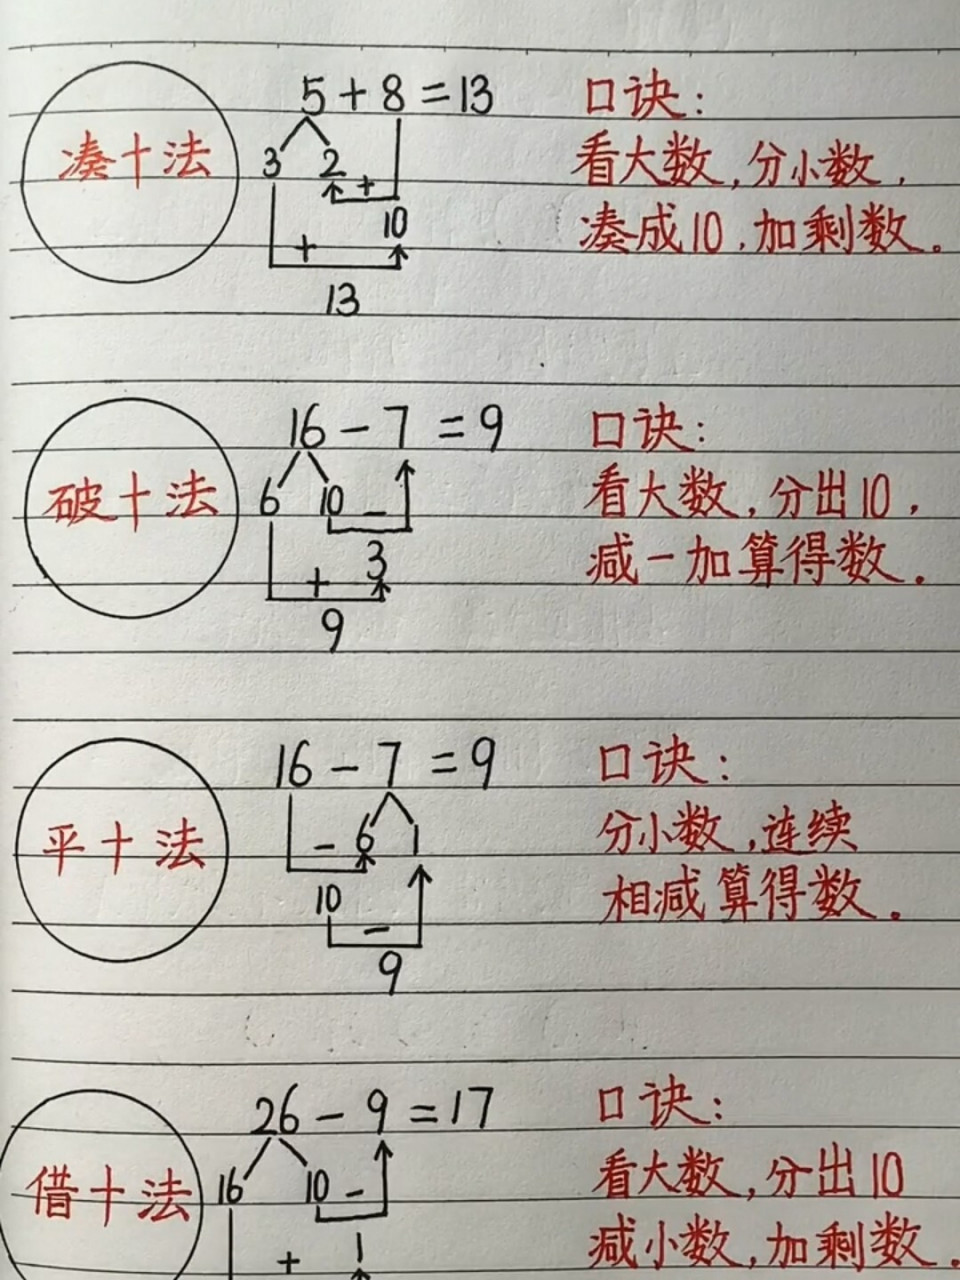 凑十法
5+8=13
3 2 +
10
+
13
口诀:
看大数,分小数,
凑成10,加剩数。
破十法
16-7=9
6 10 -
3
+
9
口诀:
看大数,分出10,
减一加算得数.
平十法
16-7=9
- 6 1
10
-
9
口诀:
分小数,连续
相减算得数.
借十法
26-9=17
16 10 -
+ 1
口诀:
看大数,分出10
减小数,加剩数.